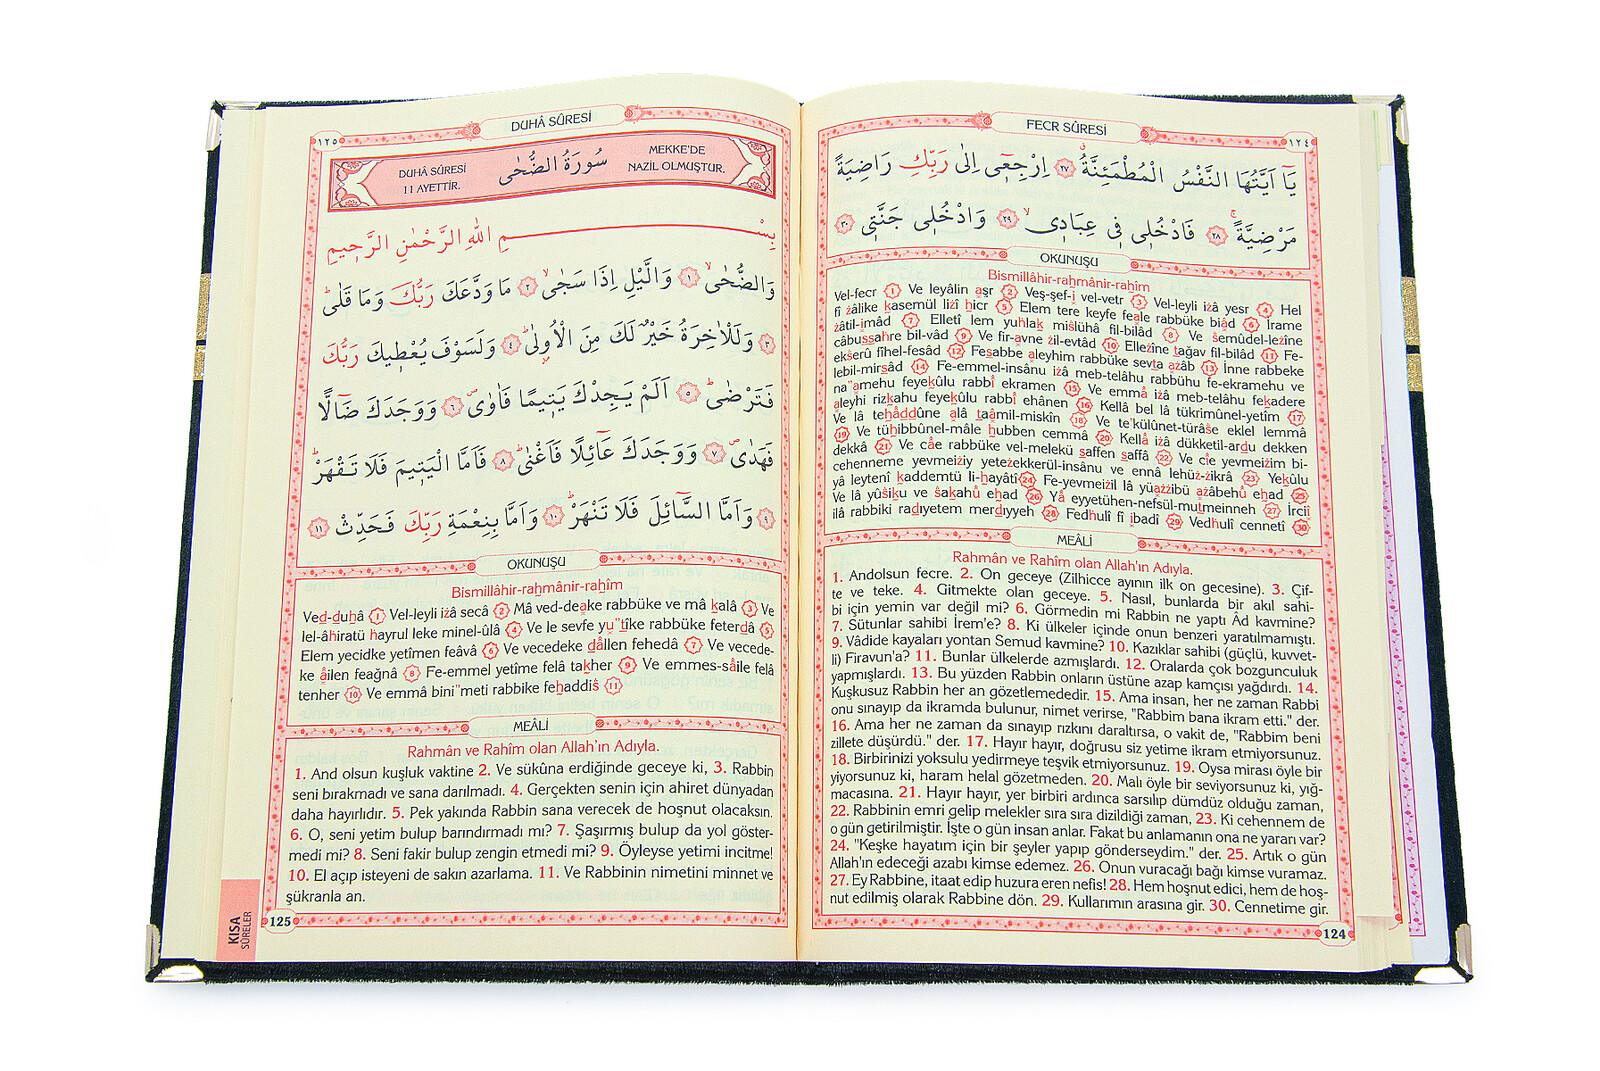 FECR SÛRESİ
١٢٤
يَا اَيَّتُهَا النَّفْسُ الْمُطْمَئِنَّةُۗ ٢٧ اِرْجِع۪ٓي اِلٰى رَبِّكِ رَاضِيَةً
مَرْضِيَّةًۚ ٢٨ فَادْخُل۪ي ف۪ي عِبَاد۪يۙ ٢٩ وَادْخُل۪ي جَنَّت۪ي ٣٠
OKUNUŞU
Bismillâhir-rahmânir-rahîm
Vel-fecr 1 Ve leyâlin aşr 2 Veş-şef-i vel-vetr 3 Vel-leyli iżâ yesr 4 Hel
fî żâlike kasemül lizî hicr 5 Elem tere keyfe feale rabbüke biâd 6 İrame
żâtil-imâd 7 Elletî lem yuhlak miślühâ fil-bilâd 8 Ve śemûdel-lezîne
câbussahre bil-vâd 9 Ve fir-avne żil-evtâd 10 Ellezîne tağav fil-bilâd 11 Fe-
ekśerû fîhel-fesâd 12 Fesabbe aleyhim rabbüke sevta azâb 13 İnne rabbeke
lebil-mirsâd 14 Fe-emmel-insânu iżâ meb-telâhu rabbühu fe-ekramehu ve
na"amehu feyekûlu rabbî ekramen 15 Ve emmâ iżâ meb-telâhu fekadere
aleyhi rizkahu feyekûlu rabbî ehânen 16 Kellâ bel lâ tükrimûnel-yetîm 17
Ve lâ tehâddûne alâ taâmil-miskîn 18 Ve te'külûnet-türâśe eklel lemmâ
19 Ve tühibbûnel-mâle hubben cemmâ 20 Kellâ iżâ dükketil-ardu dekken
dekkâ 21 Ve câe rabbüke vel-melekü saffen saffâ 22 Ve cîe yevmeiżim bi-
cehenneme yevmeiżiy yeteżekkerül-insânu ve ennâ lehüż-żikrâ 23 Yekûlu
yâ leytenî kaddemtü li-hayâtî 24 Fe-yevmeizil lâ yüażżibü ażâbehû ehad 25
Ve lâ yûśiku ve śakahû ehad 26 Yâ eyyetühen-nefsül-mutmeinneh 27 İrciî
ilâ rabbiki radıyetem merdıyyeh 28 Fedhulî fî ibadî 29 Vedhulî cennetî 30
MEÂLİ
Rahmân ve Rahîm olan Allah'ın Adıyla.
1. Andolsun fecre. 2. On geceye (Zilhicce ayının ilk on gecesine). 3. Çif-
te ve teke. 4. Gitmekte olan geceye. 5. Nasıl, bunlarda bir akıl sahi-
bi için yemin var değil mi? 6. Görmedin mi Rabbin ne yaptı Âd kavmine?
7. Sütunlar sahibi İrem'e? 8. Ki ülkeler içinde onun benzeri yaratılmamıştı.
9. Vâdide kayaları yontan Semud kavmine? 10. Kazıklar sahibi (güçlü, kuvvet-
li) Firavun'a? 11. Bunlar ülkelerde azmışlardı. 12. Oralarda çok bozgunculuk
yapmışlardı. 13. Bu yüzden Rabbin onların üstüne azap kamçısı yağdırdı. 14.
Kuşkusuz Rabbin her an gözetlemededir. 15. Ama insan, her ne zaman Rabbi
onu sınayıp da ikramda bulunur, nimet verirse, "Rabbim bana ikram etti." der.
16. Ama her ne zaman da sınayıp rızkını daraltırsa, o vakit de, "Rabbim beni
zillete düşürdü." der. 17. Hayır hayır, doğrusu siz yetime ikram etmiyorsunuz.
18. Birbirinizi yoksulu yedirmeye teşvik etmiyorsunuz. 19. Oysa mirası öyle bir
yiyorsunuz ki, haram helal gözetmeden. 20. Malı öyle bir seviyorsunuz ki, yığ-
macasına. 21. Hayır hayır, yer birbiri ardınca sarsılıp dümdüz olduğu zaman,
22. Rabbinin emri gelip melekler sıra sıra dizildiği zaman, 23. Ki cehennem de
o gün getirilmiştir. İşte o gün insan anlar. Fakat bu anlamanın ona ne yararı var?
24. "Keşke hayatım için bir şeyler yapıp gönderseydim." der. 25. Artık o gün
Allah'ın edeceği azabı kimse edemez. 26. Onun vuracağı bağı kimse vuramaz.
27. Ey Rabbine, itaat edip huzura eren nefis! 28. Hem hoşnut edici, hem de hoş-
nut edilmiş olarak Rabbine dön. 29. Kullarımın arasına gir. 30. Cennetime gir.
124
DUHÂ SÛRESİ
١٢٥
DUHÂ SÛRESİ
11 AYETTİR.
سُورَةُ الضُّحٰى
MEKKE'DE
NAZİL OLMUŞTUR.
بِسْمِ اللّٰهِ الرَّحْمٰنِ الرَّح۪يمِ
وَالضُّحٰىۙ ١ وَالَّيْلِ اِذَا سَجٰىۙ ٢ مَا وَدَّعَكَ رَبُّكَ وَمَا قَلٰىۜ
٣ وَلَلْاٰخِرَةُ خَيْرٌ لَكَ مِنَ الْاُو۫لٰىۜ ٤ وَلَسَوْفَ يُعْط۪يكَ رَبُّكَ
فَتَرْضٰىۜ ٥ اَلَمْ يَجِدْكَ يَت۪يمًا فَاٰوٰىۖ ٦ وَوَجَدَكَ ضَٓالًّا
فَهَدٰىۖ ٧ وَوَجَدَكَ عَٓائِلًا فَاَغْنٰىۜ ٨ فَاَمَّا الْيَت۪يمَ فَلَا تَقْهَرْۜ
٩ وَاَمَّا السَّٓائِلَ فَلَا تَنْهَرْۜ ١٠ وَاَمَّا بِنِعْمَةِ رَبِّكَ فَحَدِّثْ ١١
OKUNUŞU
Bismillâhir-rahmânir-rahîm
Ved-duhâ 1 Vel-leyli iżâ secâ 2 Mâ ved-deake rabbüke ve mâ kalâ 3 Ve
lel-âhiratü hayrul leke minel-ûlâ 4 Ve le sevfe yu"tîke rabbüke feterdâ 5
Elem yecidke yetîmen feâvâ 6 Ve vecedeke dâllen fehedâ 7 Ve vecede-
ke âilen feağnâ 8 Fe-emmel yetîme felâ takher 9 Ve emmes-sâile felâ
tenher 10 Ve emmâ bini"meti rabbike fehaddiś 11
MEÂLİ
Rahmân ve Rahîm olan Allah'ın Adıyla.
1. And olsun kuşluk vaktine 2. Ve sükûna erdiğinde geceye ki, 3. Rabbin
seni bırakmadı ve sana darılmadı. 4. Gerçekten senin için ahiret dünyadan
daha hayırlıdır. 5. Pek yakında Rabbin sana verecek de hoşnut olacaksın.
6. O, seni yetim bulup barındırmadı mı? 7. Şaşırmış bulup da yol göster-
medi mi? 8. Seni fakir bulup zengin etmedi mi? 9. Öyleyse yetimi incitme!
10. El açıp isteyeni de sakın azarlama. 11. Ve Rabbinin nimetini minnet ve
şükranla an.
125
KISA
SÛRELER